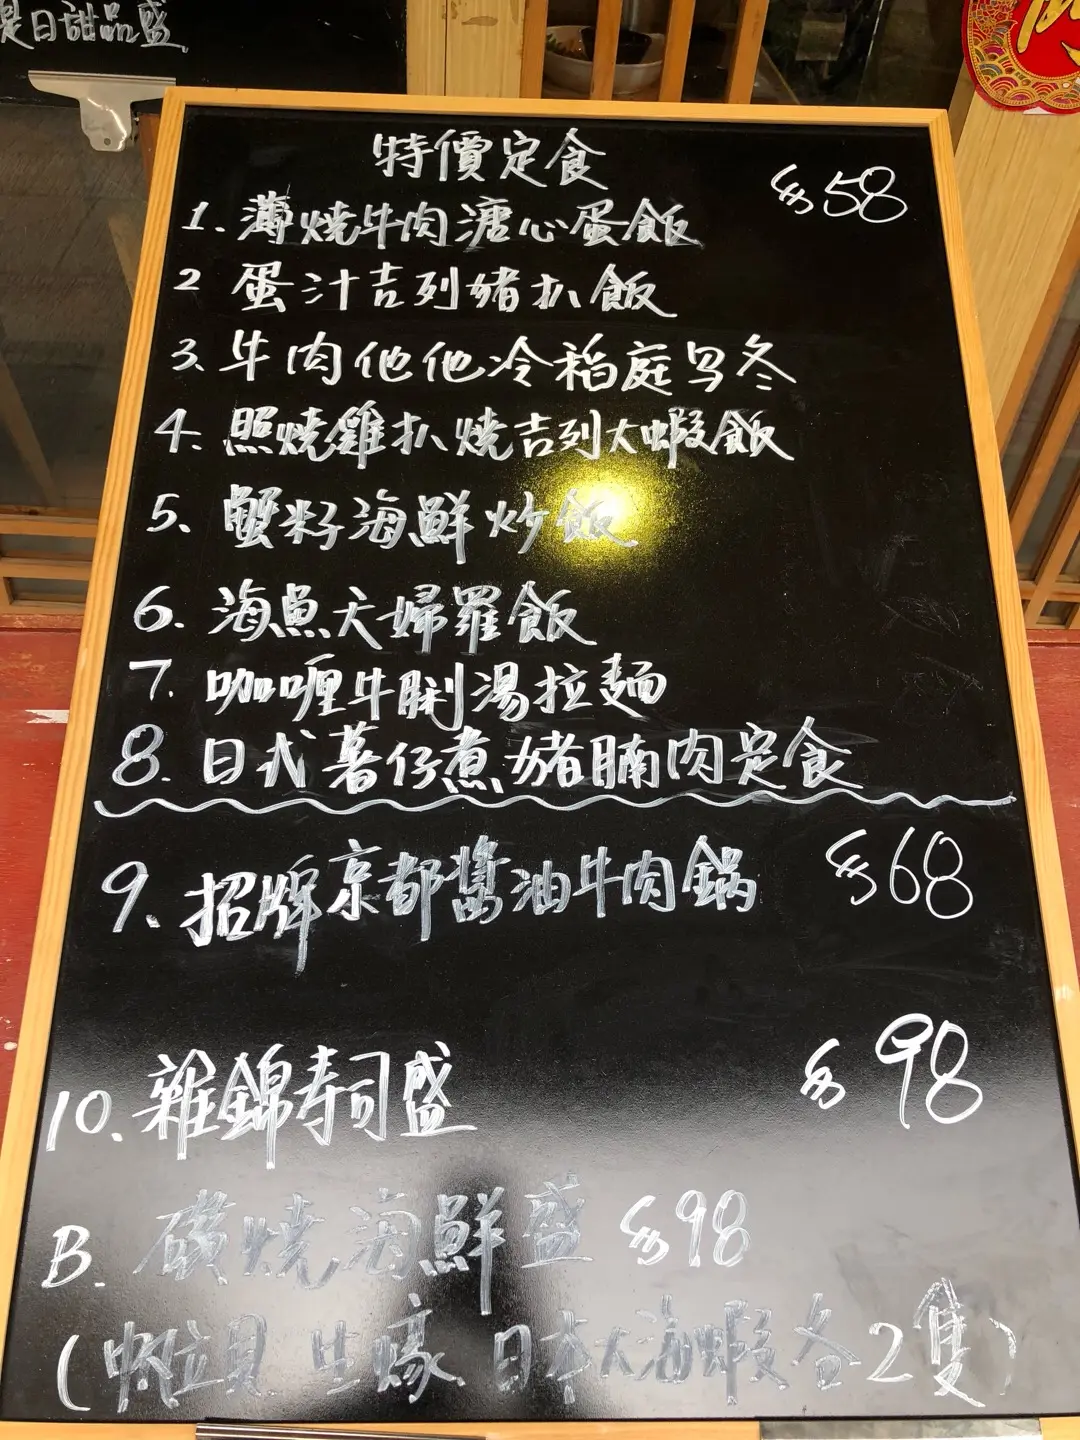 是日甜品盛
特價定食
$58
1. 薄燒牛肉溏心蛋飯
2 蛋汁吉列豬扒飯
3. 牛肉他他冷稻庭乌冬
4. 照燒雞扒燒吉列大蝦飯
5. 蟹籽海鮮炒飯
6. 海魚天婦羅飯
7. 咖喱牛脷湯拉麵
8. 日式薯仔煮豬腩肉定食
9. 招牌京都醬油牛肉鍋 $68
10. 雜錦寿司盛 $98
B. 磯燒海鮮盛 $98
(帆立貝 生蠔 日本大海蝦各2隻)